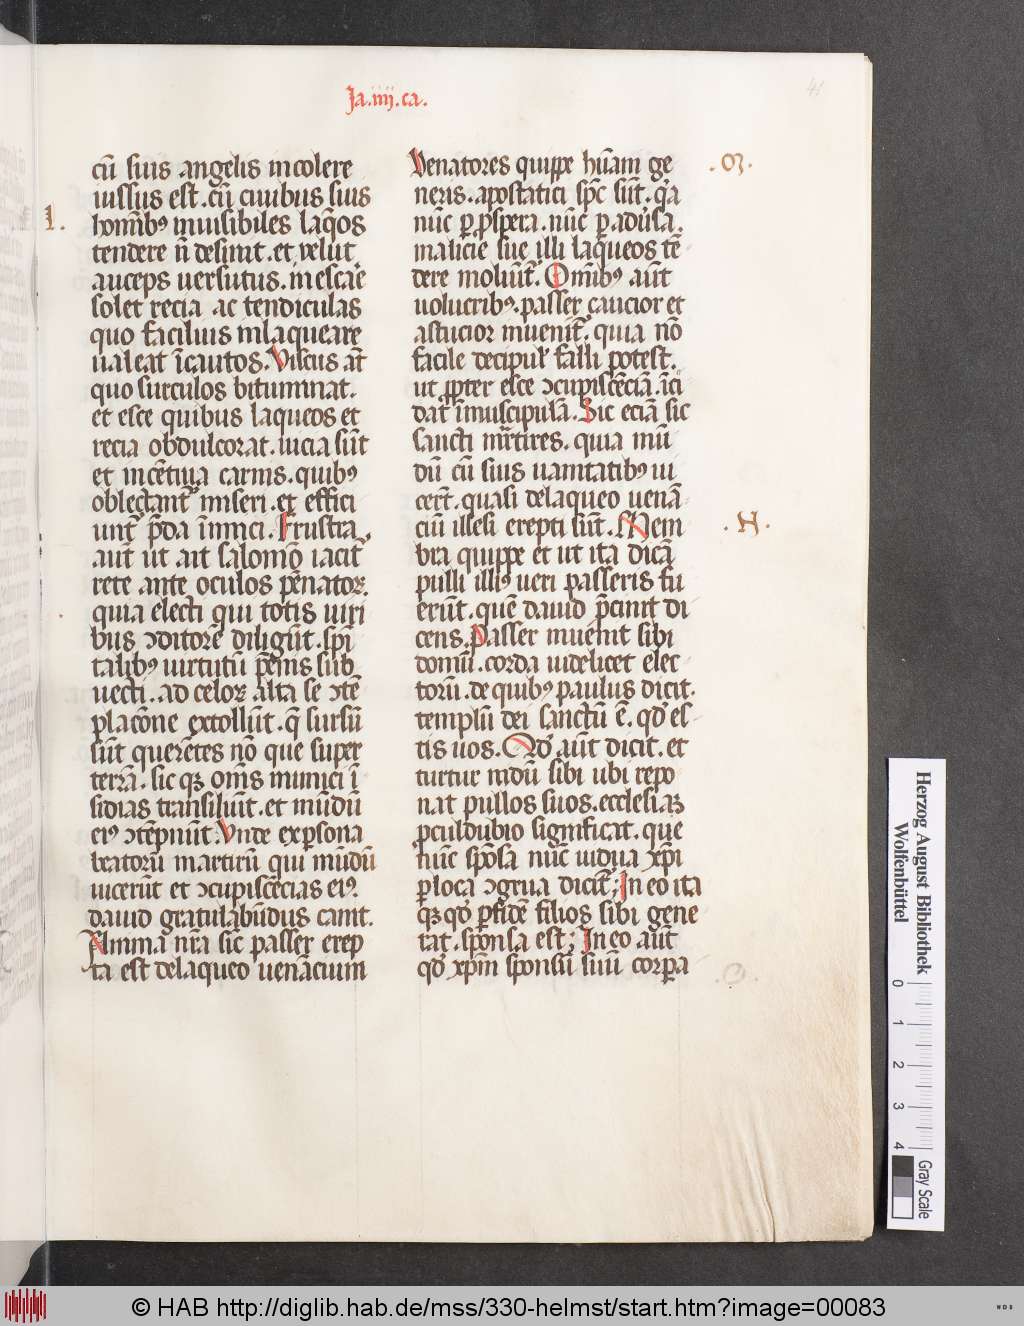 Ja.iiij.ca.
41
cū suis angelis incolere
iussus est. cū ciuibus suis
.L.
homībꝰ inuisibiles laq̄os
tendere n̄ desinit. et velut
auceps uersutus. in escāe
solet recia ac tendiculas
quo facilius inlaqueare
ualeat īcautos. Viscus aūt
quo surculos bituminat.
et esce quibus laqueos et
recia obdulcorat. iucia sūt
et incētiua carnis. quibꝰ
oblectant᷑ miseri. et effici
unt᷑ p̄da īimici. Frustra
aūt ut ait salomō iacit᷑
rete ante oculos pēnatoꝝ.
quia electi qui totis uiri
bus ꝯditorē diligūt. sp̄i
talibꝰ uirtutū pēnis sub
uecti. ad celoꝝ alta se ꝯtē
placōne extollūt. q̄ sursū
sūt querētes nō que super
terrā. sic qꝫ om̄s inimici ī
sidias transiliūt. et mūdū
eiꝰ ꝯtēpnūt. Vnde ex ꝑsona
beatorū martirū qui mūdū
uicerūt et ꝯcupiscēcias eiꝰ.
dauid gratulabūdus canit.
Anima nr̄a sic̄ passer erep
ta est de laqueo uenācium
Venatores quippe hūani ge
.M.
neris. apostatici sp̄c sūt. q̄a
nūc ꝑ ꝓspera. nūc ꝑ aduˀsa.
malicie sue illi laqueos tē
dere moliūt᷑. Omībꝰ aūt
uolucribꝰ. passer caucior et
astucior inuenit᷑. quia nō
facile decipul᷑ falli potest.
ut ꝓpter esce ꝯcupiscēciā. īci
dat īmuscipulā. Sic eciā sic
sancti mr̄tires. quia mū
dū cū suis uanitatibꝰ ui
cert̄. quasi de laqueo uenā
ciū illesi erepti sūt. Mem
.N.
bra quippe et ut ita dicā
pulli illiꝰ ueri passeris fu
erūt. quē dauid p̄cinit di
cens. Passer inuenit sibi
domū. corda uidelicet elec
torū. de quibꝰ paulus dicit.
templū dei sanctū ē. qd̓ es
tis uos. Qd̓ aūt dicit. et
turtur nidū sibi ubi repo
nat pullos suos. ecclesiaꝫ
ꝓculdubio significat. que
nūc spōsa nūc uidua xp̄i
ꝑ loca ꝯgrua dicit᷑; In eo ita
qꝫ qd̓ ꝑ fidē filios sibi gene
rat. sponsa est; In eo aūt
qd̓ xp̄m sponsū suū corpa
.O.
Herzog August Bibliothek
Wolfenbüttel
0 1 2 3 4
Gray Scale
© HAB http://diglib.hab.de/mss/330-helmst/start.htm?image=00083